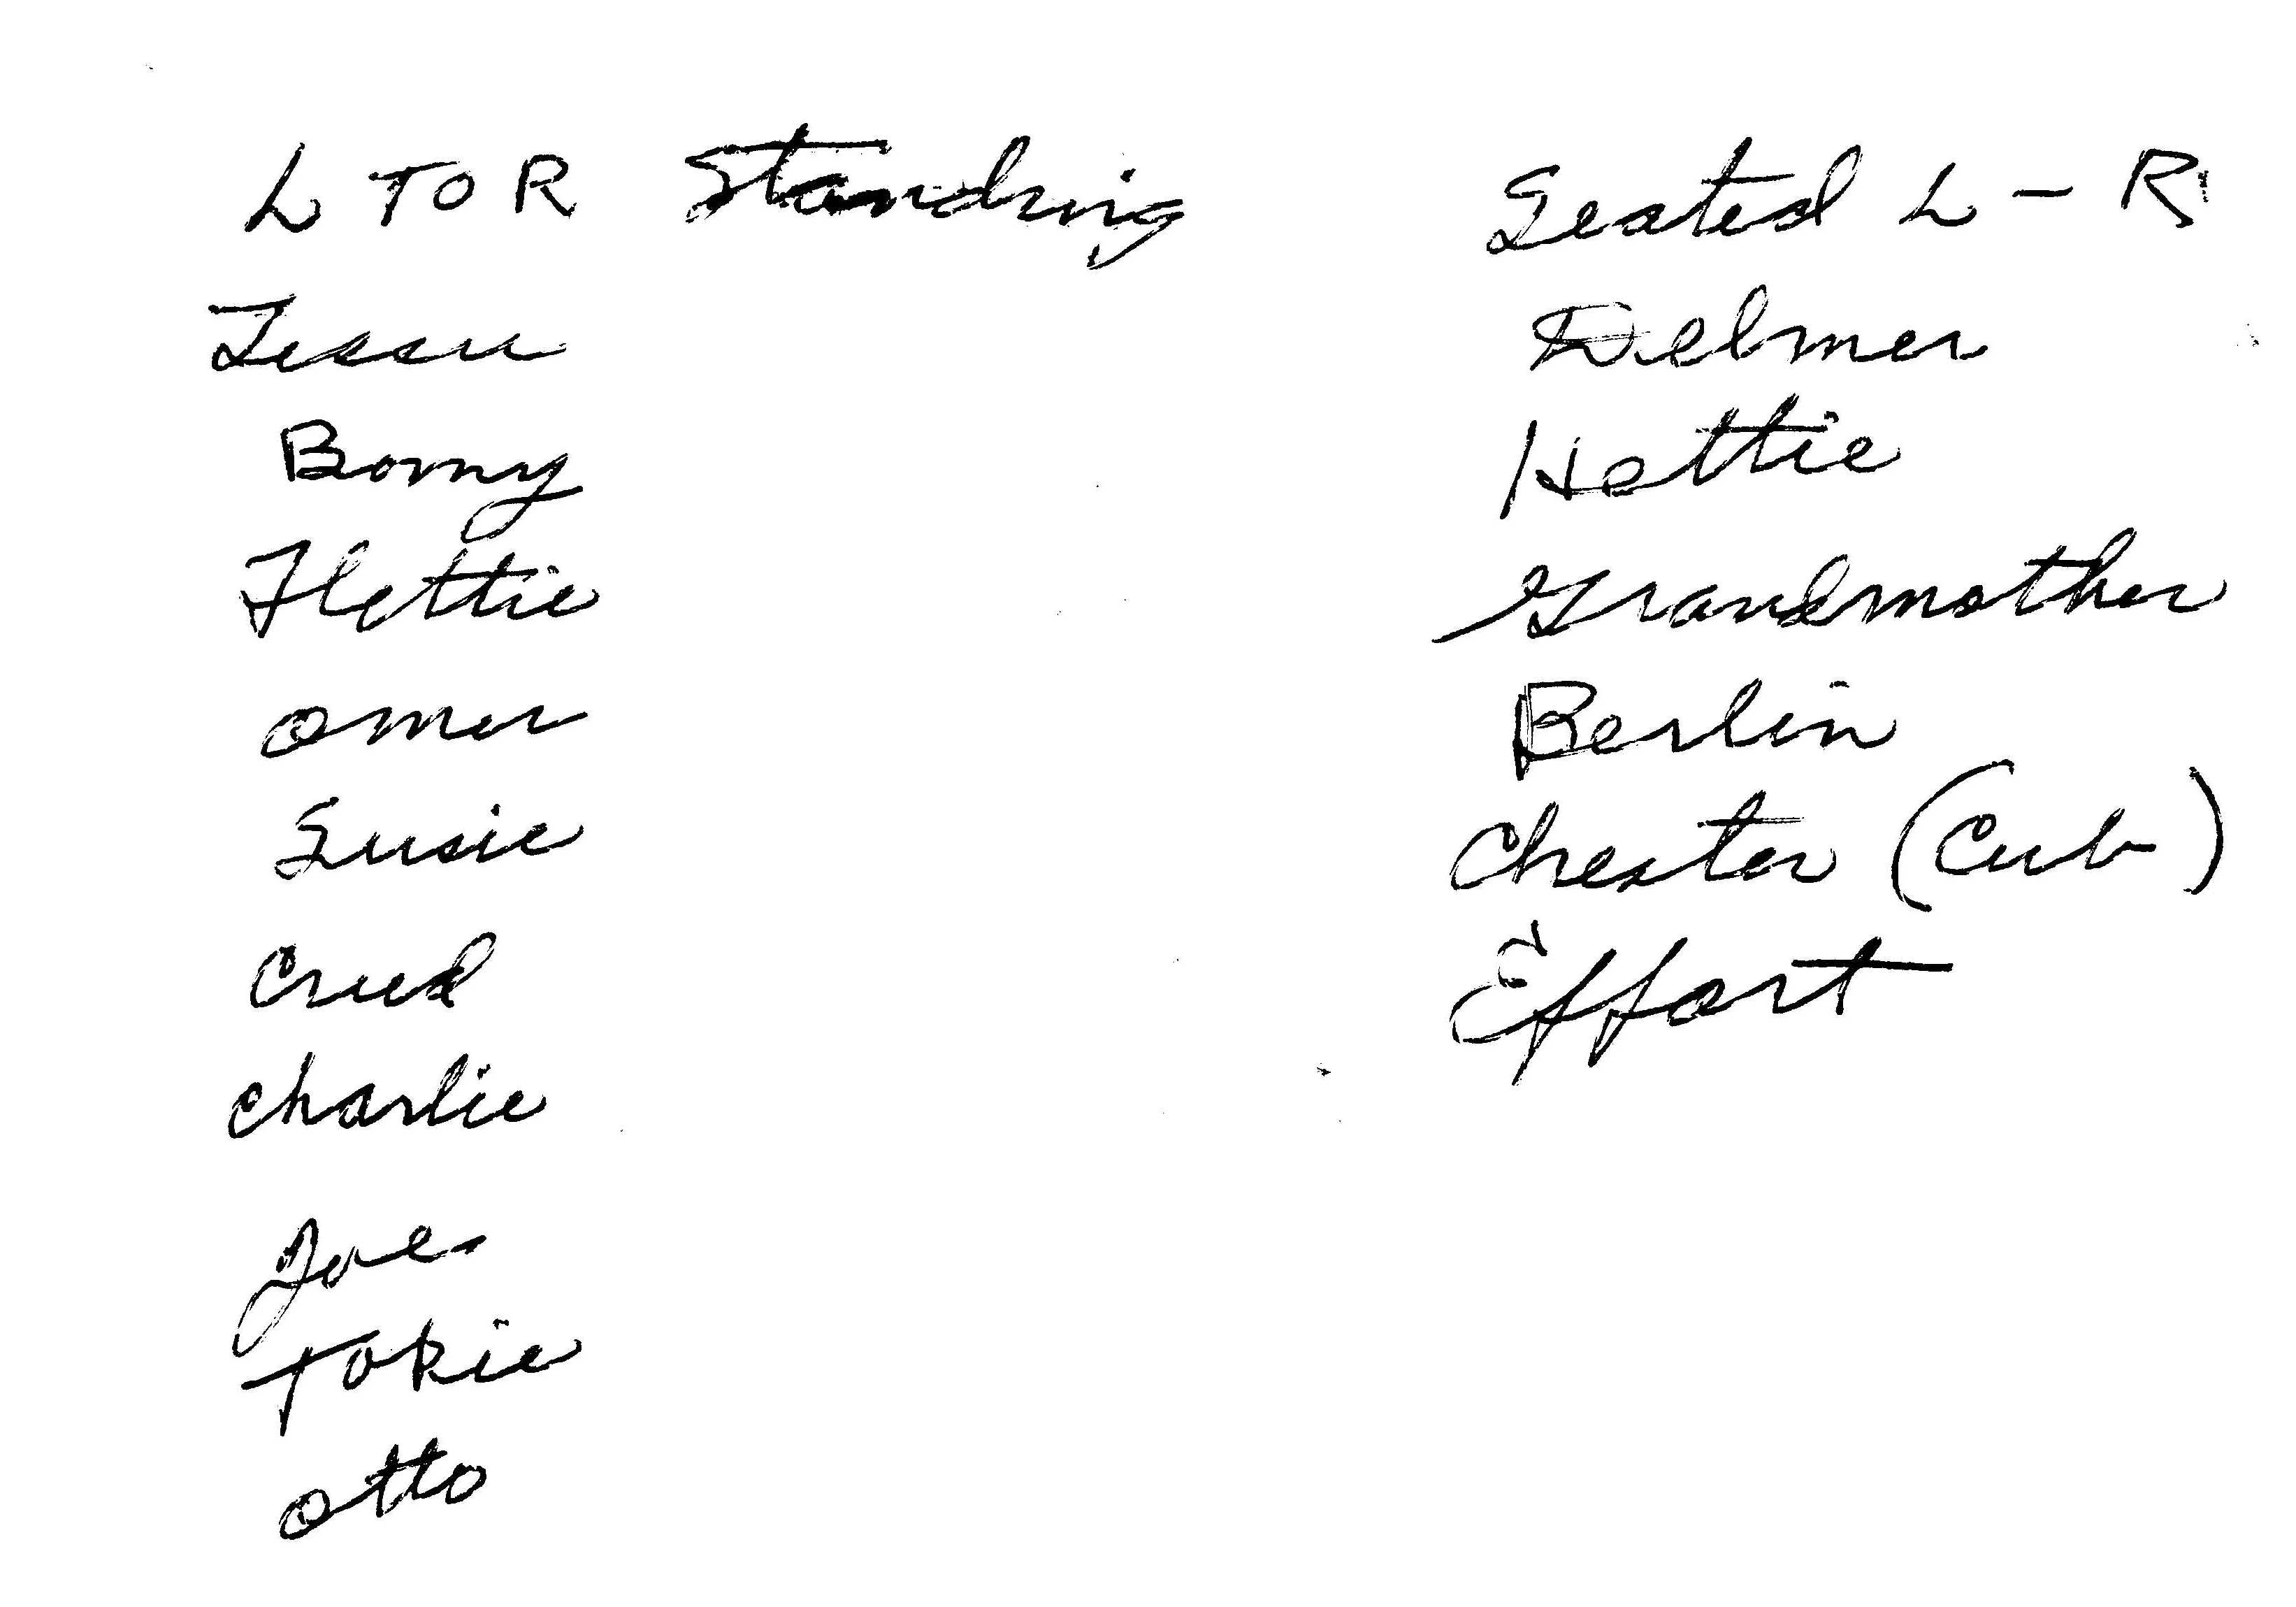 L TO R Standing
Bomy
Flettie
Omer
Susie
Creed
Charlie
Joe
Tokie
Otto
Seated L - R
Delmer
Hettie
Grandmother
Berlin
Chester (Cub)
Effort